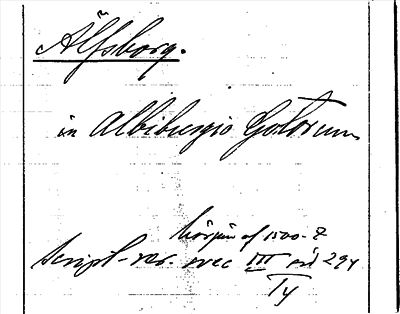 Älfsborg.
in Albiburgio Gotorum
början af 1500-t
Script. rer. svec III s. 294
Ty